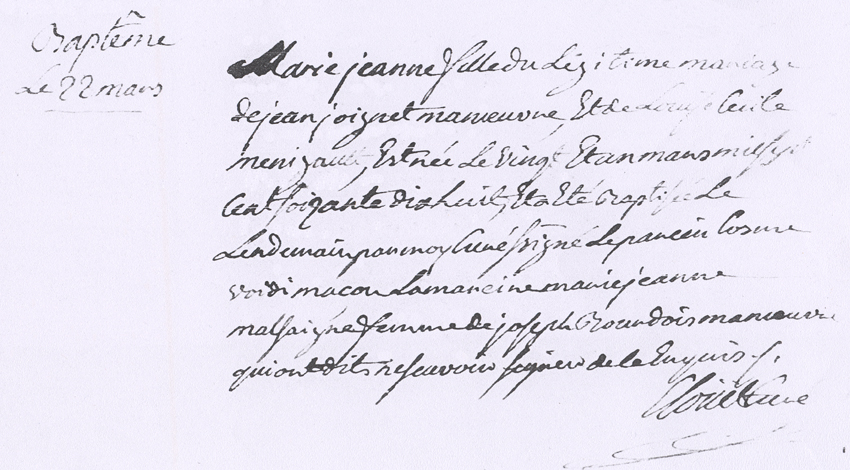 Baptême
Le 22 mars
Marie jeanne fille du Légitime mariage
de jean joignet manœuvre, Et de Louise Cécile
menigault, Est née Le vingt Et un mars mil sept
Cent soixante dix huit, Et a Eté Baptisée Le
Lendemain par moy Curé ssigné Le parein Cosme
voidi macon La mareine marie jeanne
malsaigne femme de joseph Bourdois manœuvre
qui ont dits ne scavoir signer de ce Enquis
Curé